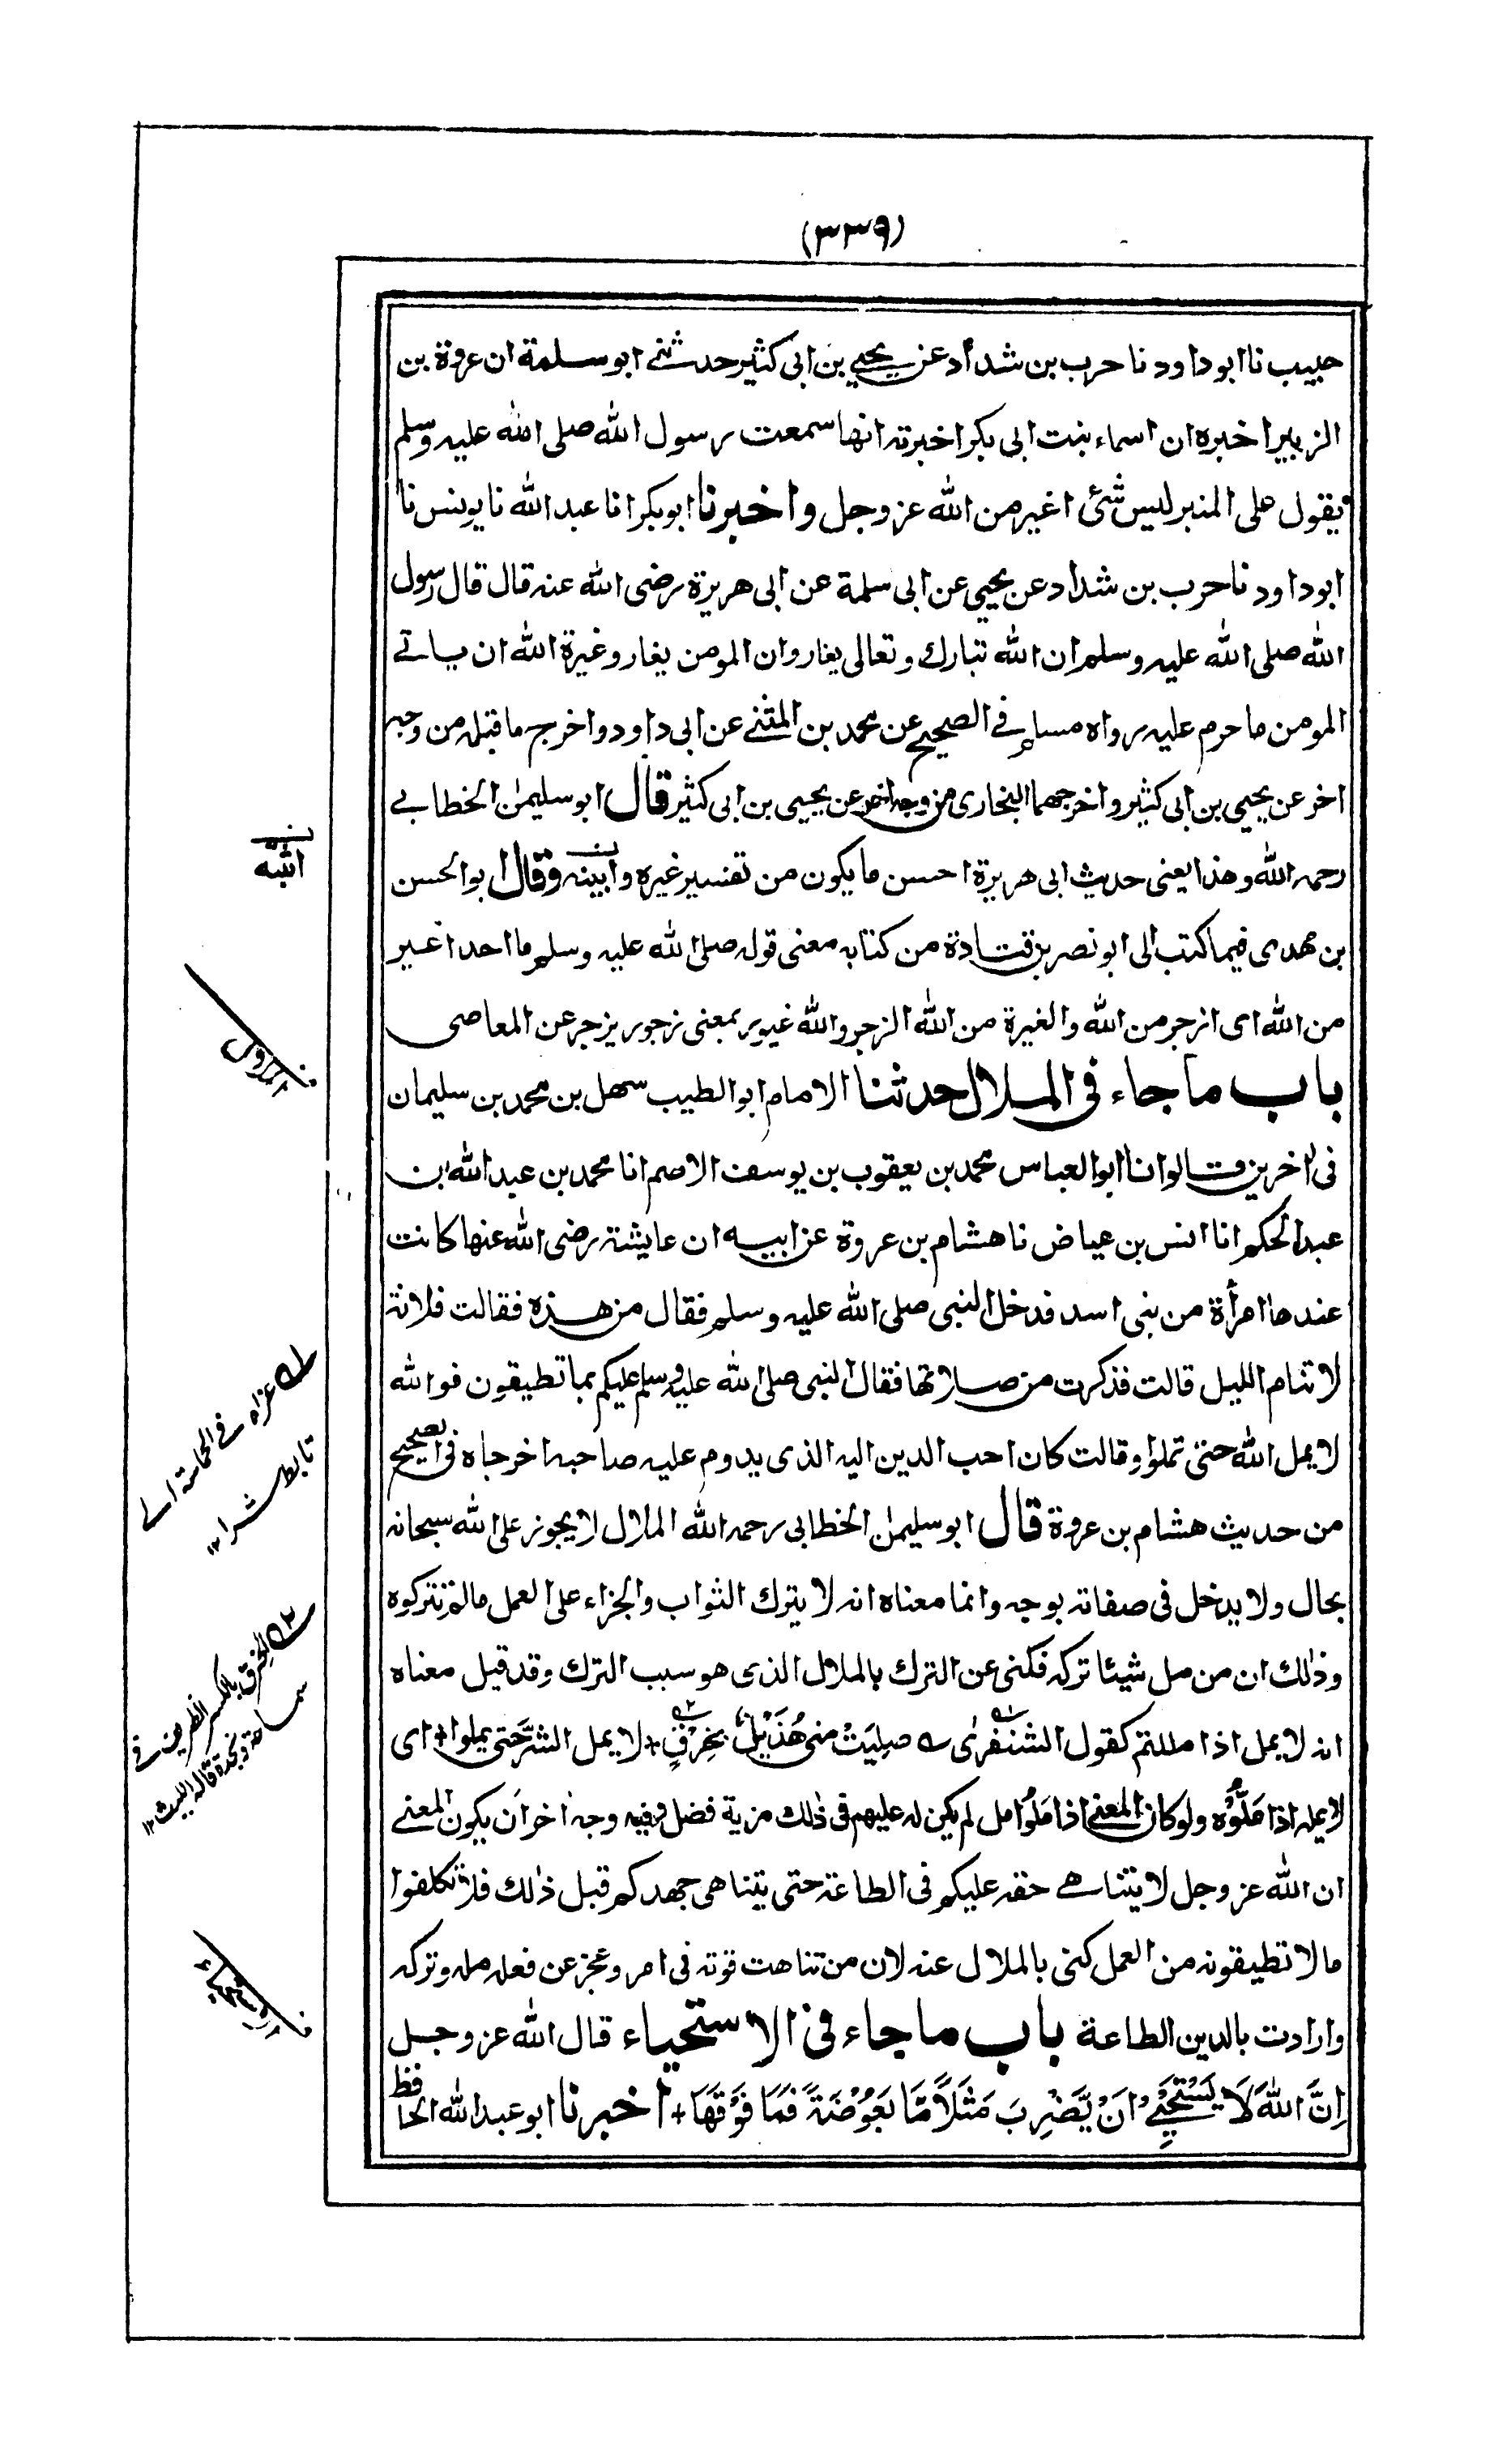 (٣٣٩)
حبيب نا ابو داود نا حرب بن شداد عن يحيي بن ابى كثير حدثنے ابو سلمة ان عروة بن
الزبير اخبره ان اسماء بنت ابى بكر اخبرته انها سمعت رسول الله صلى الله عليه وسلم
يقول على المنبر ليس شئ اغير من الله عز وجل واخبرنا ابو بكر انا عبد الله نا يونس نا
ابو داود نا حرب بن شداد عن يحيي عن ابى سلمة عن ابى هريرة رضى الله عنه قال قال رسول
الله صلى الله عليه وسلم ان الله تبارك وتعالى يغار وان المومن يغار وغيرة الله ان ياتے
المومن ما حرم عليه رواه مسلم فے الصحيح عن محمد بن المثنے عن ابى داود واخرج ما قبله من وجه
اخر عن يحيي بن ابى كثير واخرجهما البخارى من وجه اخر عن يحيى بن ابى كثير قال ابو سليمٰن الخطابے
رحمه الله وهذا يعنى حديث ابى هريرة احسن ما يكون من تفسير غيره وابينه وقال ابو الحسن
بن مهدى فيما كتب الى ابو نصر بن قتادة من كتابه معنى قوله صلى الله عليه وسلم ما احد اغير
من الله اى ازجر من الله والغيرة من الله الزجر والله غيور بمعنى زجور يزجر عن المعاصى
باب ما جاء فى الملال حدثنا الامام ابو الطيب سهل بن محمد بن سليمان
فى اخرين قالوا انا ابو العباس محمد بن يعقوب بن يوسف الاصم انا محمد بن عبد الله بن
عبد الحكم انا انس بن عياض نا هشام بن عروة عن ابيه ان عايشة رضى الله عنها كانت
عندها امرأة من بنى اسد فدخل النبى صلى الله عليه وسلم فقال من هذه فقالت فلانة
لا تنام الليل قالت فذكرت من صلاتها فقال النبى صلى الله عليه وسلم عليكم بما تطيقون فو الله
لا يمل الله حتى تملوا وقالت كان احب الدين اليه الذى يدوم عليه صاحبه اخرجاه فى الصحيح
من حديث هشام بن عروة قال ابو سليمٰن الخطابى رحمه الله الملال لا يجوز على الله سبحانه
بحال ولا يدخل فى صفاته بوجه وانما معناه انه لا يترك الثواب والجزاء على العمل ما لم تتركوه
وذٰلك ان من مل شيئا تركه فكنى عن الترك بالملال الذى هو سبب الترك وقد قيل معناه
انه لا يمل اذا مللتم كقول الشنفرى صلِيَتْ منى هُذَيْلٌ بخِرْقٍ + لا يمل الشَّرَّ حتى يملوا + اى
لا يمله اذا مَلُّوْه ولو كان المعنے اذا مَلُّوا مل لم يكن له عليهم فى ذٰلك مزية فضل وفيه وجه اخر ان يكون المعنے
ان الله عز وجل لا يتناهے حقه عليكم فى الطاعة حتى يتناهى جهدكم قبل ذٰلك فلا تكلفوا
ما لا تطيقونه من العمل كنى بالملال عنه لان من تناهت قوته فى امر وعجز عن فعله مله وتركه
وارادت بالدين الطاعة باب ما جاء فى الاستحياء قال الله عز وجل
اِنَّ اللهَ لَا يَسْتَحْيٖٓ اَنْ يَّضْرِبَ مَثَلًا مَّا بَعُوْضَةً فَمَا فَوْقَهَا + اخبرنا ابو عبد الله الحافظ
اثبته
الملال
١ه عزاه فے الحماسة الے
تابط شرا ١٢
٢ه الخرق بالكسر الظريف فے
سماحة ونجدة قاله الليث ١٢
الاستحياء